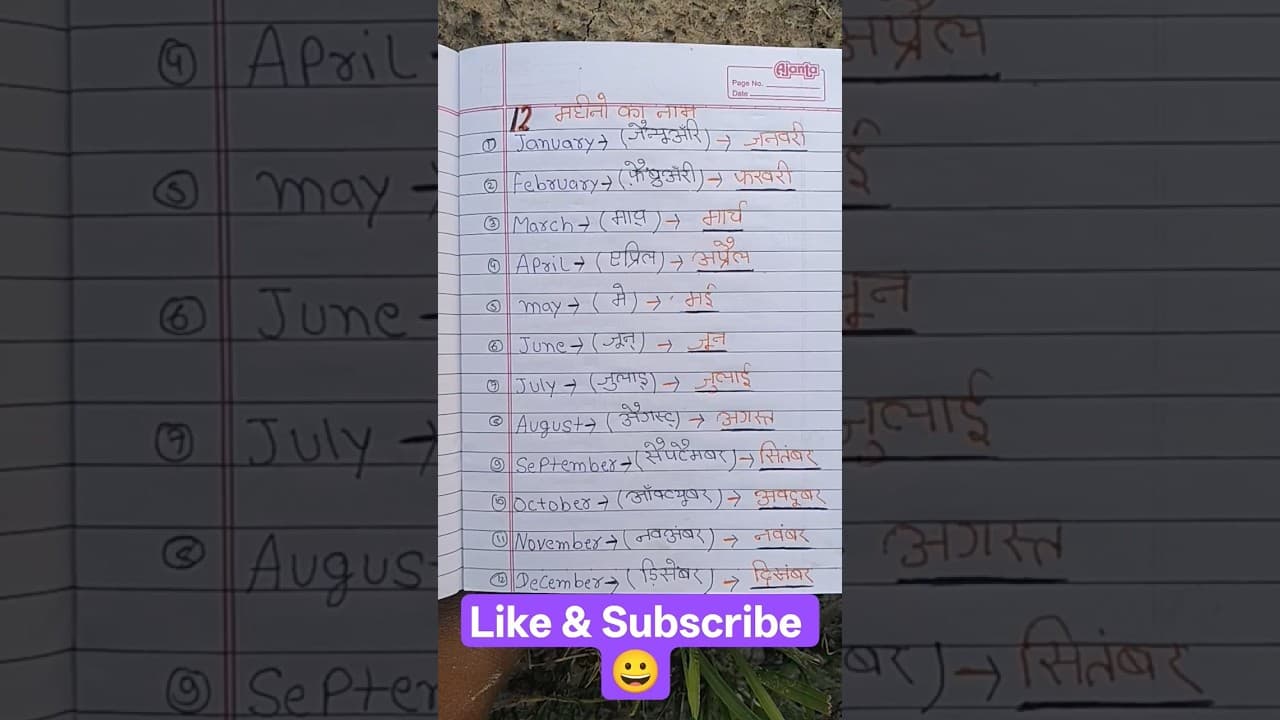 Ajanta
Page No.
Date
12 महीनो का नाम
① January → (जैन्यूअॅरि) → जनवरी
② february → (फ़ैब्रुअॅरी) → फरवरी
③ March → (माच्) → मार्च
④ April → (एप्रिल) → अप्रैल
⑤ may → (मे) → मई
⑥ June → (जून्) → जून
⑦ July → (जुलाइ) → जुलाई
⑧ August → (औगस्ट्) → अगस्त
⑨ September → (सैपटैमबर) → सितंबर
⑩ October → (ऑक्टयूबर) → अक्टूबर
⑪ November → (नवअंबर) → नवंबर
⑫ December → (डिसेंबर) → दिसंबर
Like & Subscribe
😀